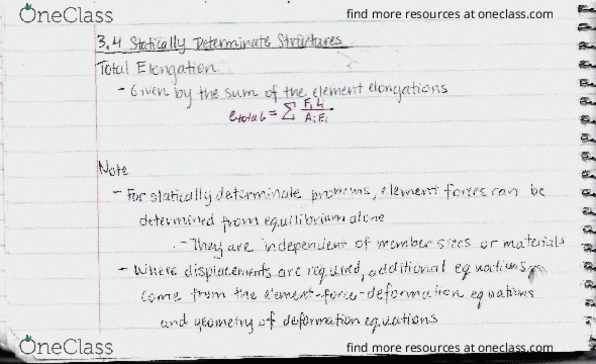 OneClass
find more resources at oneclass.com
3.4 Statically Determinate Structures
Total Elongation
- Given by the sum of the element elongations
e_total = Σ F_i L_i / A_i E_i
Note
- For statically determinate problems, element forces can be
determined from equilibrium alone
- They are independent of member sizes or materials
- Where displacements are required, additional equations
come from the element-force-deformation equations
and geometry of deformation equations
OneClass
find more resources at oneclass.com